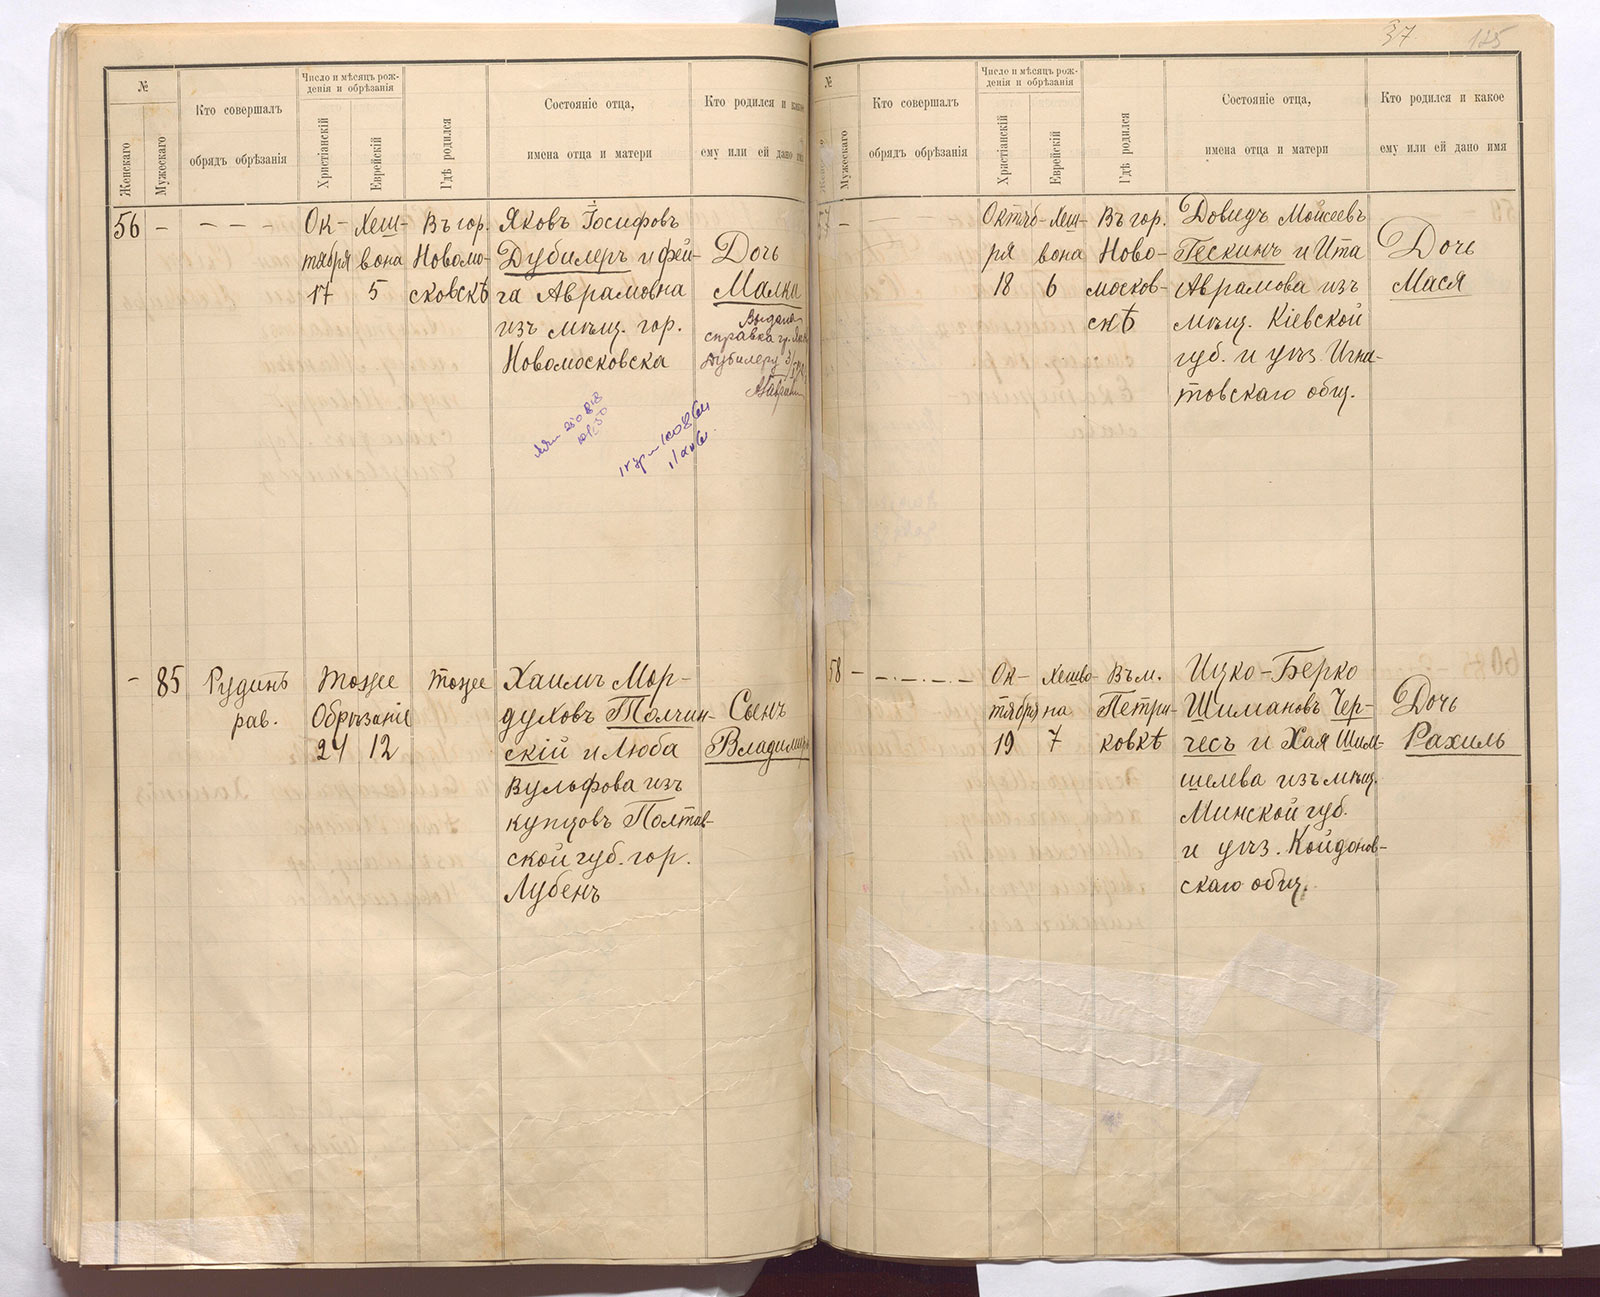 №
Женскаго
Мужескаго
Кто совершалъ
обрядъ обрѣзанія
Число и мѣсяцъ рож-
денія и обрѣзанія
Христіанскій
Еврейскій
Гдѣ родился
Состояніе отца,
имена отца и матери
Кто родился и какое
ему или ей дано имя
56
Ок-
тября
17
Хеш-
вона
5
Въ гор.
Новомо-
сковскѣ
Яковъ Іосифовъ
Дубилеръ и Фей-
га Аврамовна
изъ мѣщ. гор.
Новомосковска
Дочь
Малка
Выдана
справка гр.
Дубилеру
85
Рудинъ
рав.
Тоже
Обрѣзаніе
24 12
тоже
Хаимъ Мор-
духовъ Толчин-
скій и Люба
Вульфова изъ
купцовъ Полтав-
ской губ. гор.
Лубенъ
Сынъ
Владимиръ
37
№
Мужескаго
Кто совершалъ
обрядъ обрѣзанія
Число и мѣсяцъ рож-
денія и обрѣзанія
Христіанскій
Еврейскій
Гдѣ родился
Состояніе отца,
имена отца и матери
Кто родился и какое
ему или ей дано имя
57
Октяб-
ря
18
Хеш-
вона
6
Въ гор.
Ново-
москов-
скѣ
Довидъ Моисеевъ
Гескинъ и Ита
Аврамова изъ
мѣщ. Кіевской
губ. и уѣз. Игна-
товскаго общ.
Дочь
Мася
58
Ок-
тября
19
Хешво-
на
7
Въ м.
Петри-
ковкѣ
Ицко-Берко
Шимановъ Чер-
чесъ и Хая Шим-
шелева изъ мѣщ.
Минской губ.
и уѣз. Койданов-
скаго общ.
Дочь
Рахиль